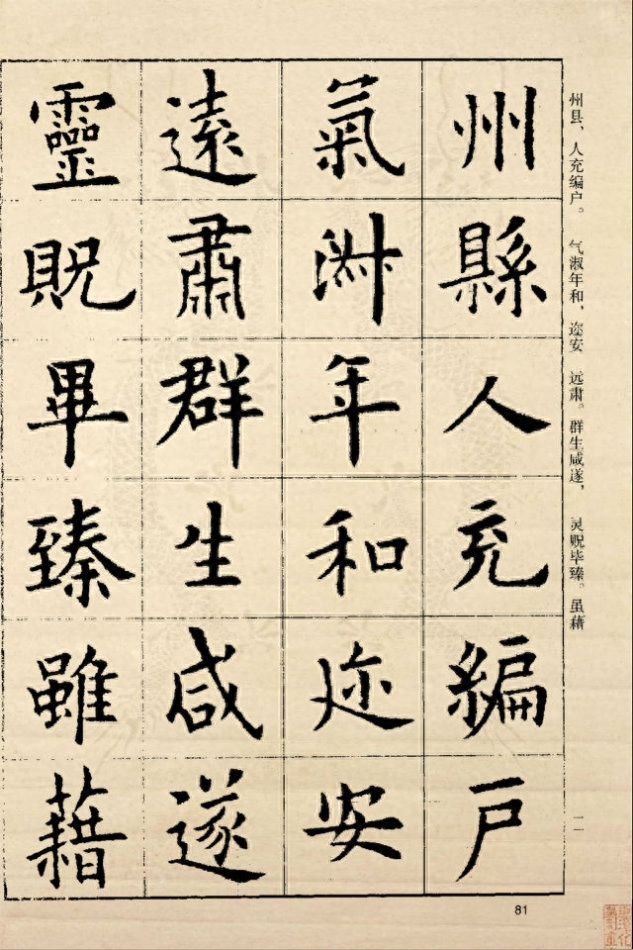 州縣人充編戶
氣淋年和迩安
遠肅群生咸遂
靈貺畢臻雖藉
州县、人充编户。 气淑年和，迩安 远肃。群生咸遂， 灵贶毕臻。虽藉
一一
81